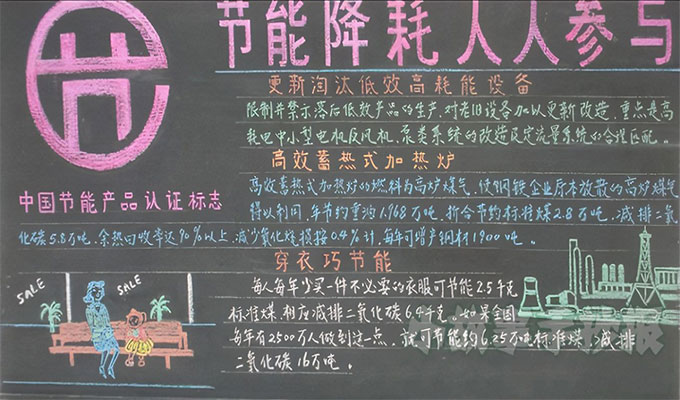 节能降耗人人参与
更新淘汰低效高耗能设备
限制并禁示落后低效产品的生产,对老旧设备加以更新改造,重点是高
耗电中小型电机及风机、泵类系统的改造及定流量系统的合理匹配。
高效蓄热式加热炉
高效蓄热式加热炉的燃料为高炉煤气,使钢铁企业原本放散的高炉煤气
得以利用,年节约重油1.968万吨,折合节约标准煤2.8万吨、减排二氧
化碳5.8万吨,余热回收率达90%以上,减少氧化烧损按0.4%计,每年可增产钢材1900吨。
中国节能产品认证标志
穿衣巧节能
每人每年少买一件不必要的衣服可节能2.5千克
标准煤,相应减排二氧化碳6.4千克。如果全国
每年有2500万人做到这一点,就可节能约6.25万吨标准煤,减排
二氧化碳16万吨。
SALE
SALE